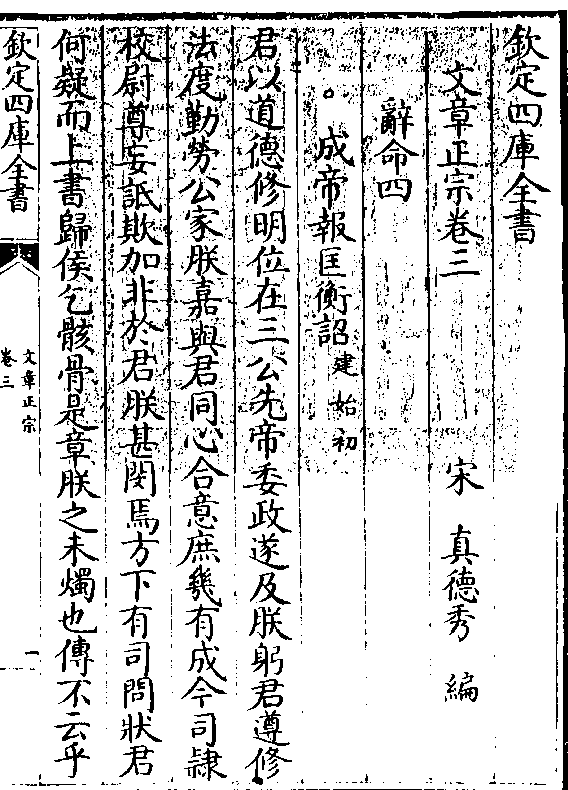 欽定四庫全書
文章正宗卷三
宋 真德秀 編
辭命四
。成帝報匡衡詔建始初
君以道德修明位在三公先帝委政遂及朕躬君遵修
法度勤勞公家朕嘉與君同心合意庶幾有成今司隷
校尉尊妄詆欺加非於君朕甚閔焉方下有司問狀君
何疑而上書歸侯乞骸骨是章朕之未燭也傳不云乎
欽定四庫全書
文章正宗
卷三
一